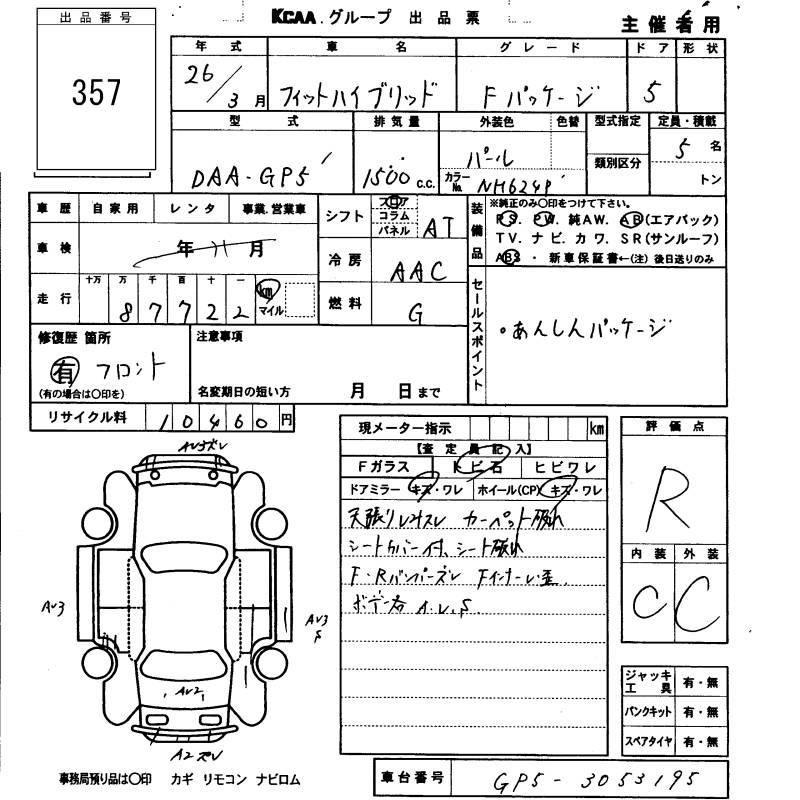 出品番号
357
KCAA.グループ 出品票
主催者用
年式 車名 グレード ドア 形状
26/3月 フィットハイブリッド Fパッケージ 5
型式 排気量 外装色 色替 型式指定 定員・積載
DAA-GP5 1500c.c. パール 5名
カラーNo. NH624P 類別区分 トン
車歴 自家用 レンタ 事業.営業車
車検 年 月
走行 十万 万 千 百 十 一
87722 km マイル
シフト フロア コラム パネル AT
冷房 AAC
燃料 G
装備品
※純正のみ○印をつけて下さい。
P.S. P.W. 純AW. AB(エアバック)
TV. ナビ. カワ. SR(サンルーフ)
ABS ・ 新車保証書←(注) 後日送りのみ
セールスポイント
・あんしんパッケージ
修復歴 箇所
有 フロント
(有の場合は○印を)
注意事項
名変期日の短い方 月 日まで
リサイクル料 10460円
現メーター指示 km
【査定員記入】
Fガラス トビ石 ヒビワレ
ドアミラー キズ・ワレ ホイール(CP) キズ・ワレ
天張りシミスレ カーペット破れ
シートカバー付、シート破れ
F・Rバンパーズレ Fインナーレ歪.
ボデー各 A.U.S
評価点
R
内装 外装
C C
ジャッキ工具 有・無
パンクキット 有・無
スペアタイヤ 有・無
AU3ズレ
AU3
AU3
S
AU2
A2ズレ
事務局預り品は○印 カギ リモコン ナビロム
車台番号 GP5-3053195